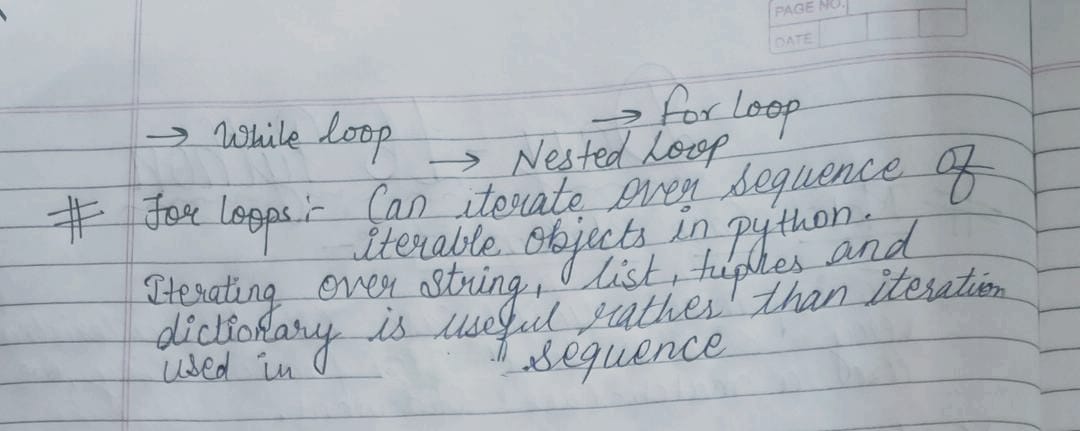 PAGE NO.
DATE
→ While loop → for loop
→ Nested Loop
# For loops :- Can iterate over sequence of
iterable objects in python.
Iterating over string, list, tuples and
dictionary is useful rather than iteration
used in " sequence